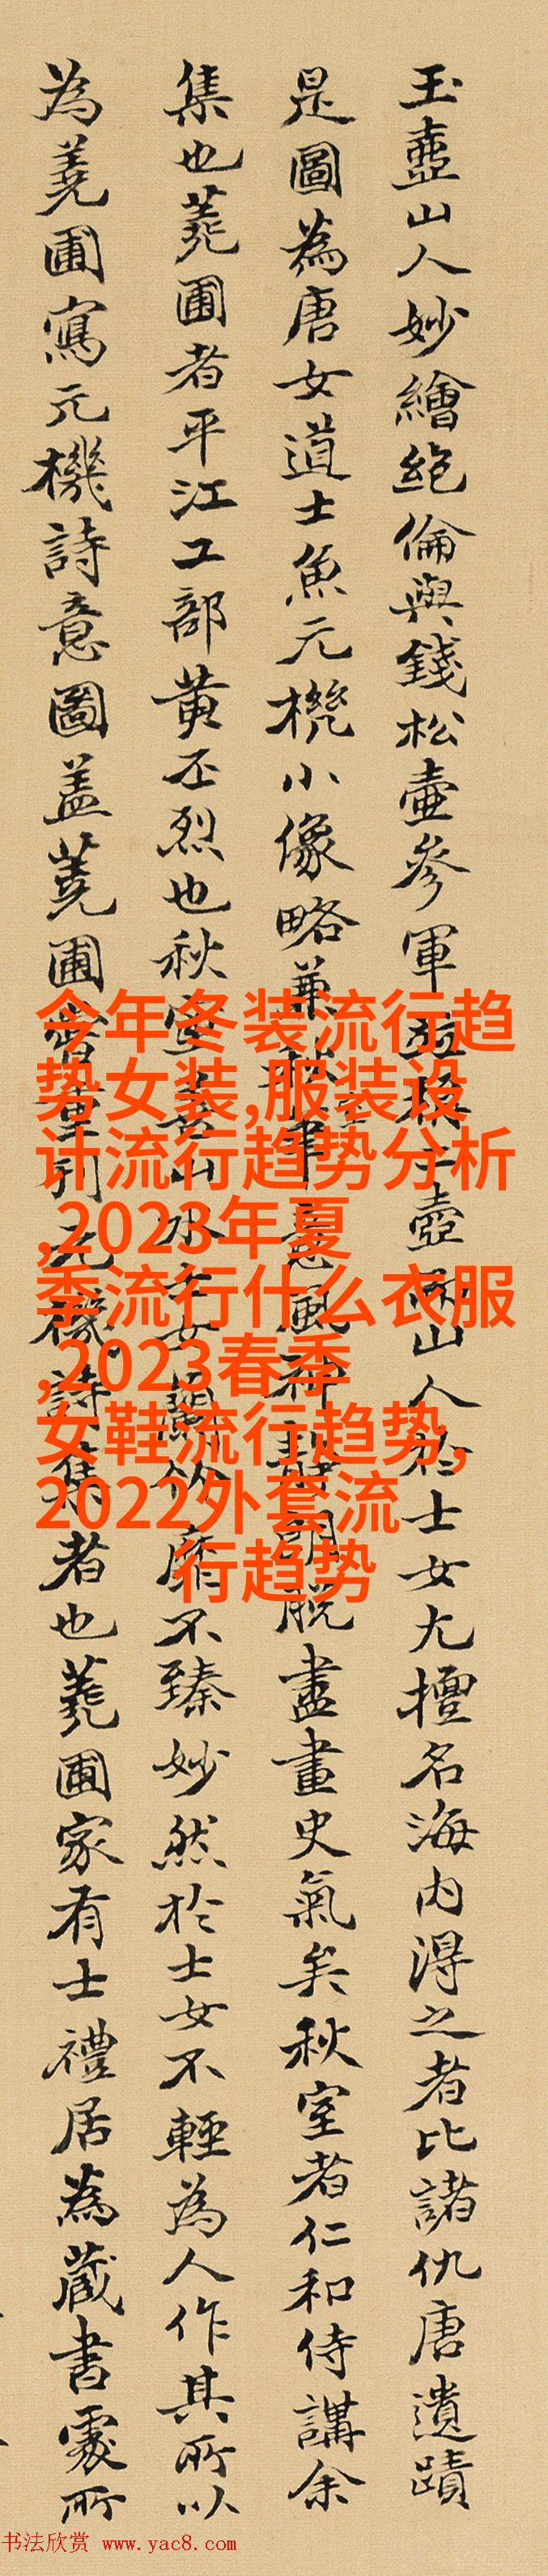 玉壺山人妙繪絶倫與錢松壺參軍並稱二壺而山人於士女尤擅名海内得之者比諸仇唐遺蹟
是圖為唐女道士魚元機小像略兼秋室筆意風神朗脫盡畫史氣矣秋室者仁和侍講余
集也蕘圃者平江工部黄丕烈也秋室畫山水士女蘭竹靡不臻妙然於士女不輕為人作其所以
為蕘圃寫元機詩意圖盖蕘圃嘗重刋元機詩集者也蕘圃家有士禮居為藏書處所
今年冬装流行趋
势女装,服装设
计流行趋势分析
,2023年夏
季流行什么衣服
,2023春季
女鞋流行趋势,
2022外套流
行趋势
书法欣赏 www.yac8.com